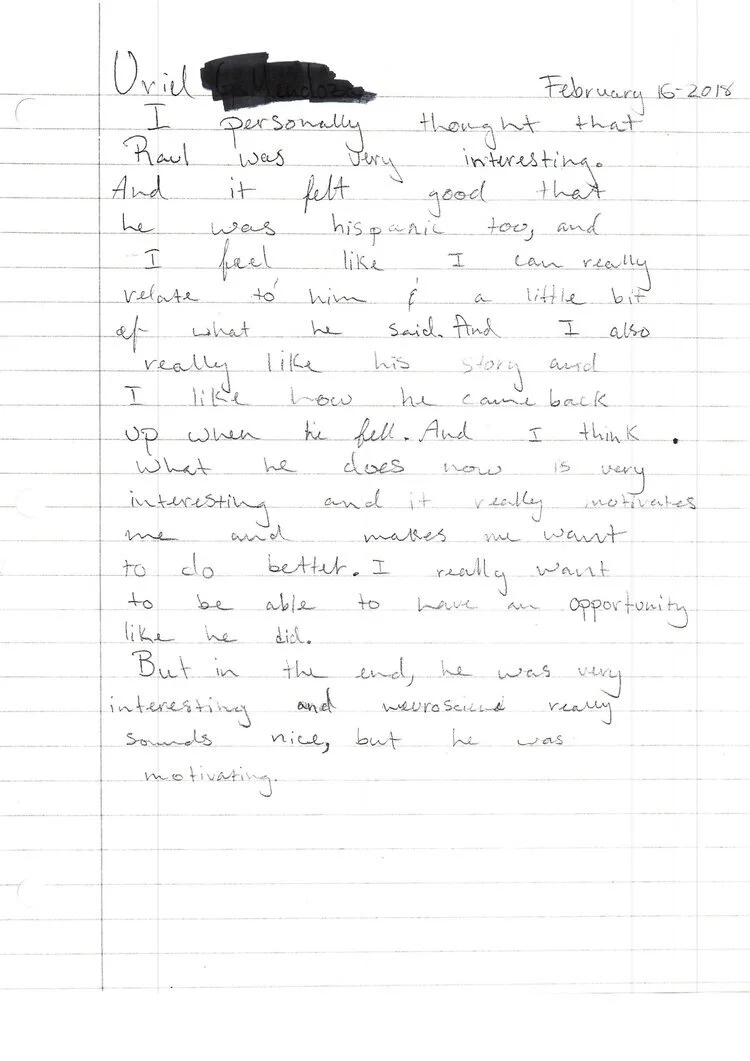 Uriel
February 16-2018
I personally thought that
Raul was very interesting.
And it felt good that
he was hispanic too, and
I feel like I can really
relate to him & a little bit
of what he said. And I also
really like his story and
I like how he came back
up when he fell. And I think.
What he does now is very
interesting and it really motivates
me and makes me want
to do better. I really want
to be able to have an opportunity
like he did.
But in the end, he was very
interesting and really
sounds nice, but he was
motivating.